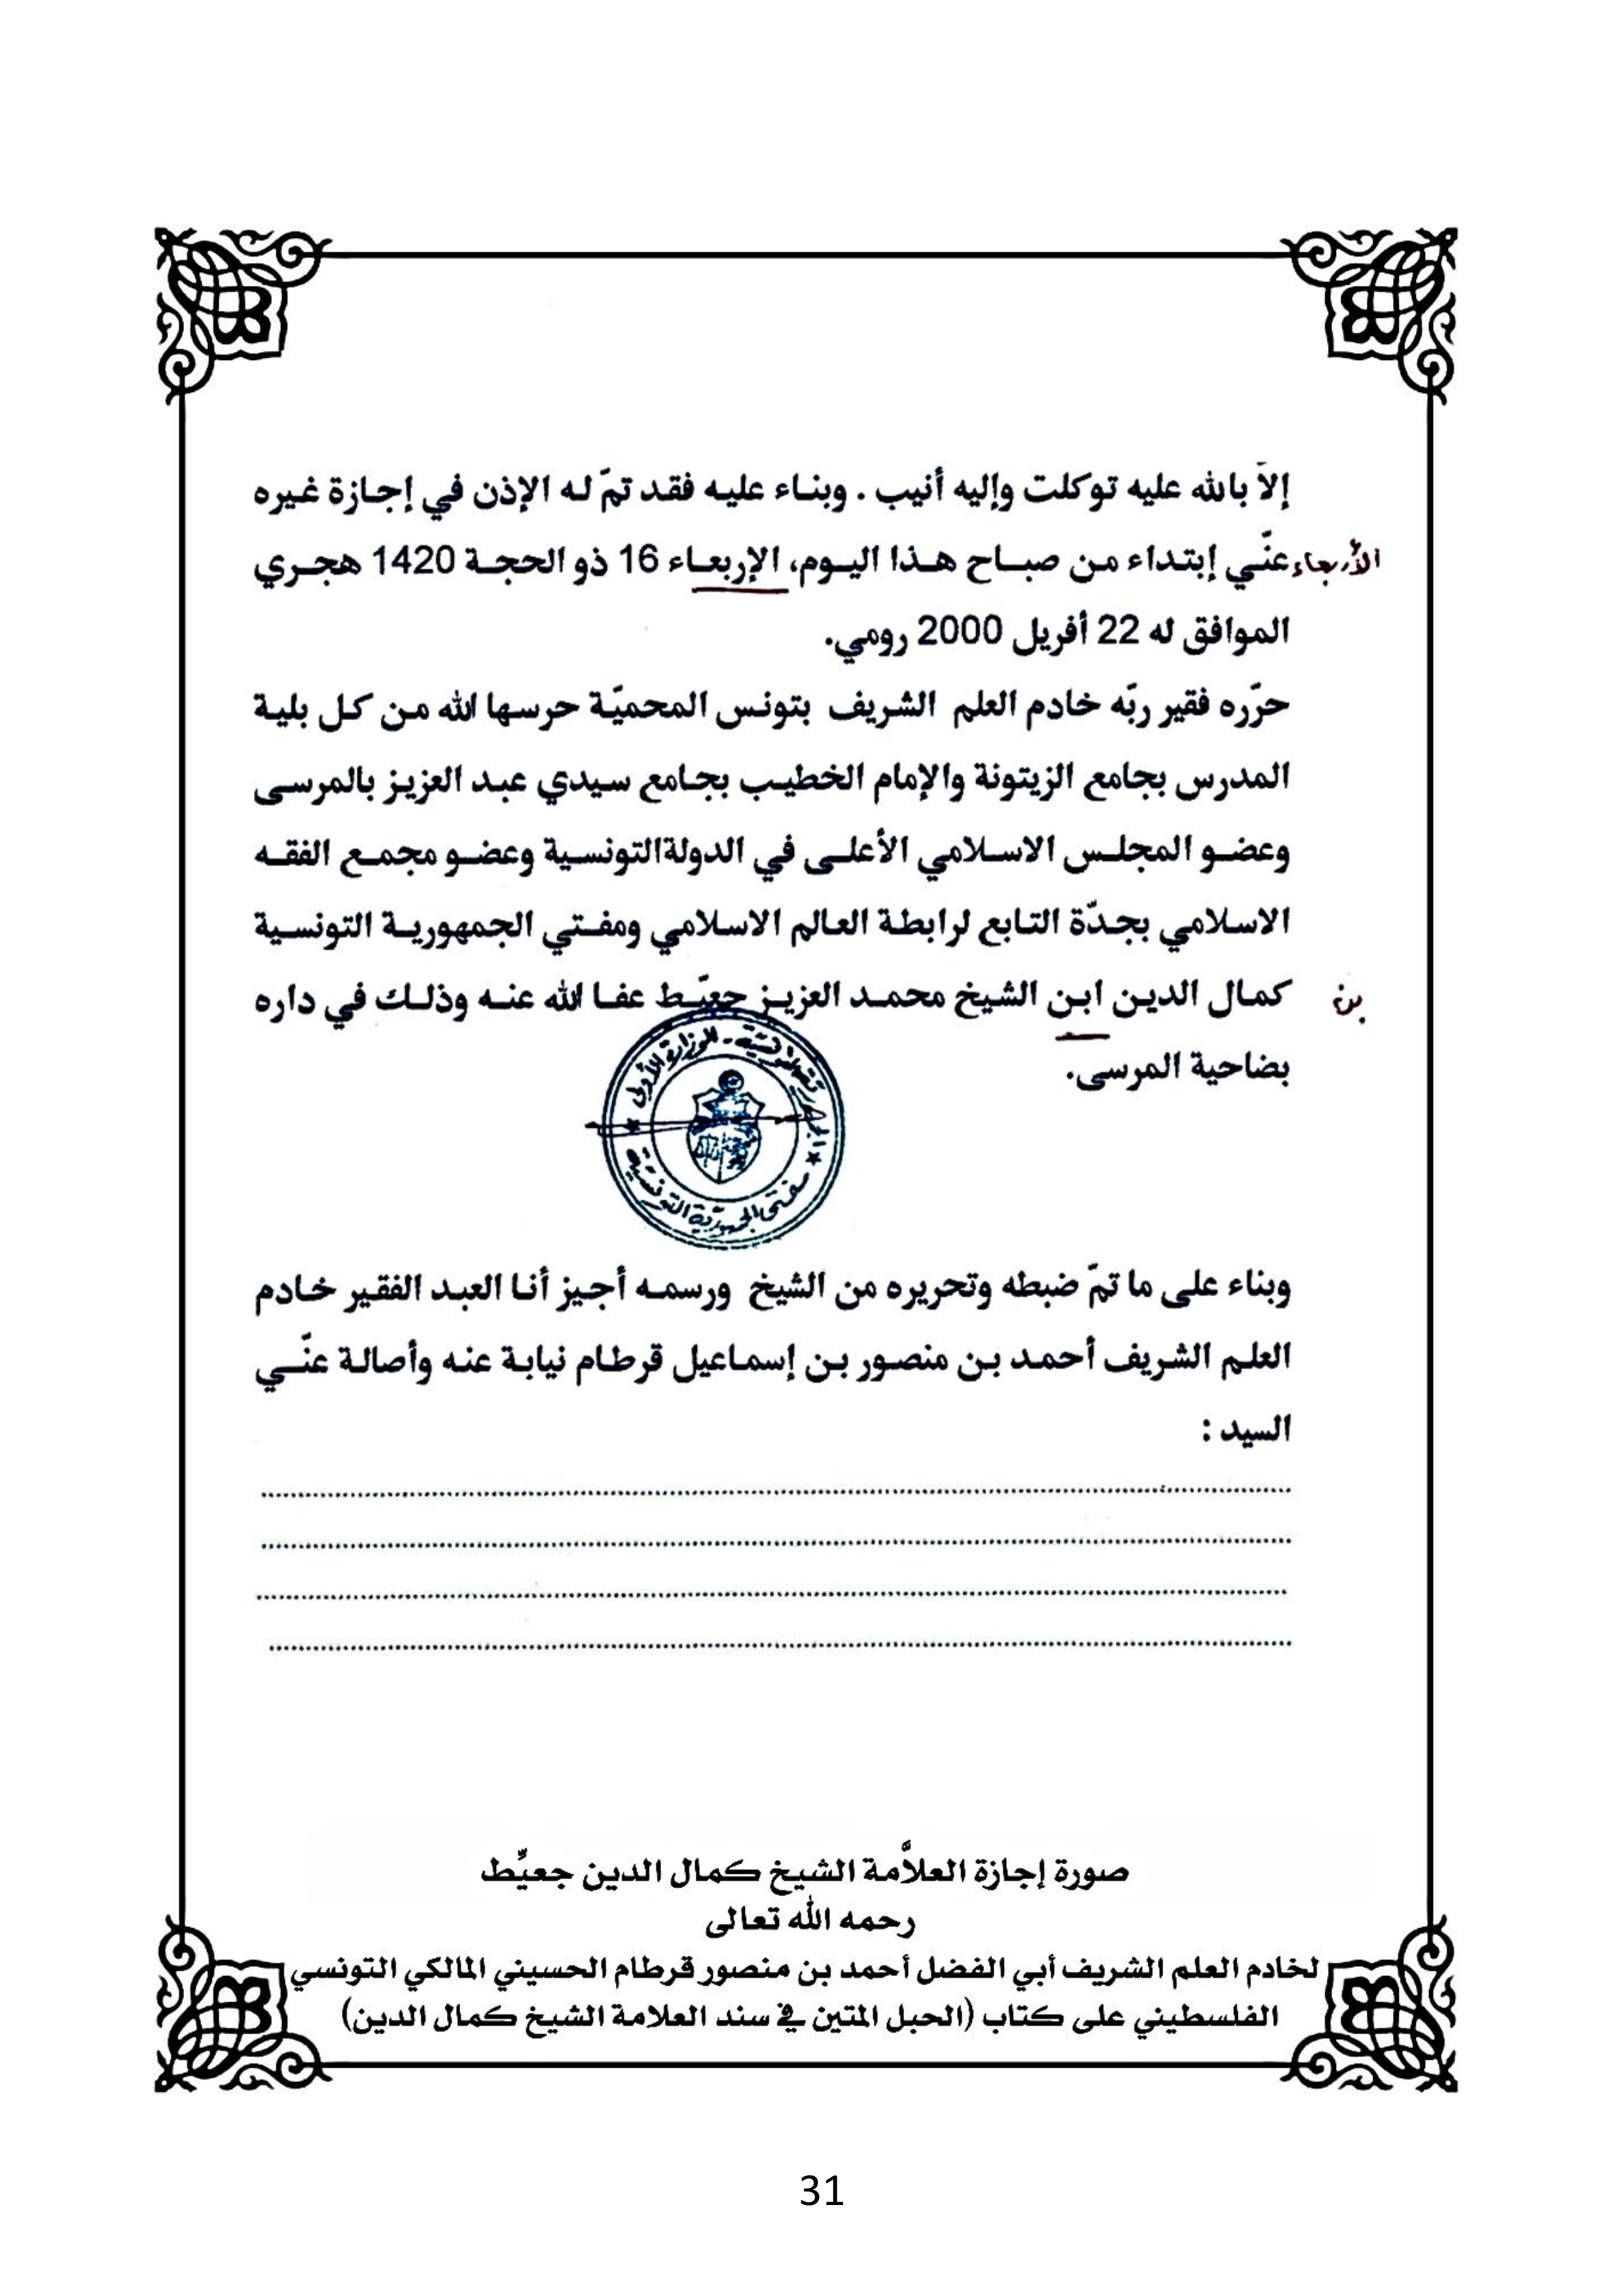 إلاّ بالله عليه توكلت وإليه أنيب . وبناء عليه فقد تمّ له الإذن في إجازة غيره
عنّي إبتداء من صباح هذا اليوم، الإربعاء 16 ذو الحجة 1420 هجري
الأربعاء
الموافق له 22 أفريل 2000 رومي.
حرّره فقير ربّه خادم العلم الشريف بتونس المحميّة حرسها الله من كل بلية
المدرس بجامع الزيتونة والإمام الخطيب بجامع سيدي عبد العزيز بالمرسى
وعضو المجلس الاسلامي الأعلى في الدولةالتونسية وعضو مجمع الفقه
الاسلامي بجدّة التابع لرابطة العالم الاسلامي ومفتي الجمهورية التونسية
كمال الدين ابن الشيخ محمد العزيز جعيّط عفا الله عنه وذلك في داره
بن
بضاحية المرسى.
الجمهورية التونسية - الوزارة الأولى
مفتي الجمهورية التونسية
وبناء على ما تمّ ضبطه وتحريره من الشيخ ورسمه أجيز أنا العبد الفقير خادم
العلم الشريف أحمد بن منصور بن إسماعيل قرطام نيابة عنه وأصالة عنّي
السيد :
صورة إجازة العلاَّمة الشيخ كمال الدين جعيِّط
رحمه الله تعالى
لخادم العلم الشريف أبي الفضل أحمد بن منصور قرطام الحسيني المالكي التونسي
الفلسطيني على كتاب (الحبل المتين في سند العلامة الشيخ كمال الدين)
31